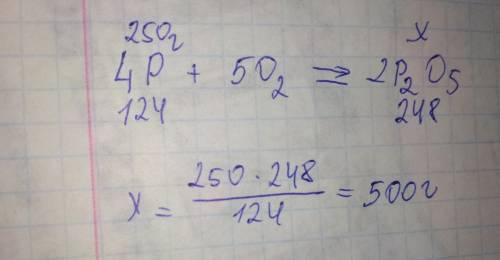 250г x
4P + 5O₂ = 2P₂O₅
124 248
x = 250 · 248 / 124 = 500г